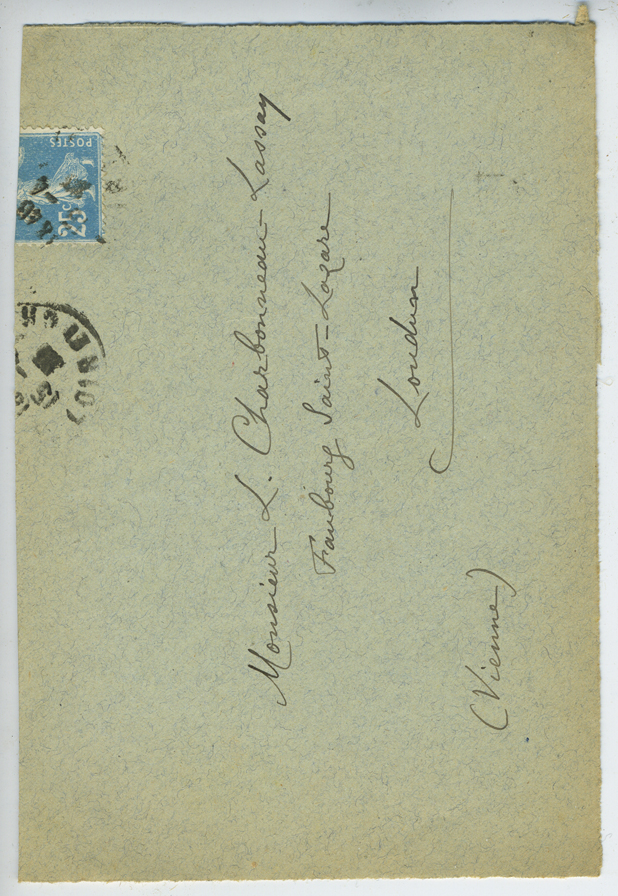 POSTES
25c
Monsieur L. Charbonneau-Lassay
Faubourg Saint-Lazare
Loudun
(Vienne)